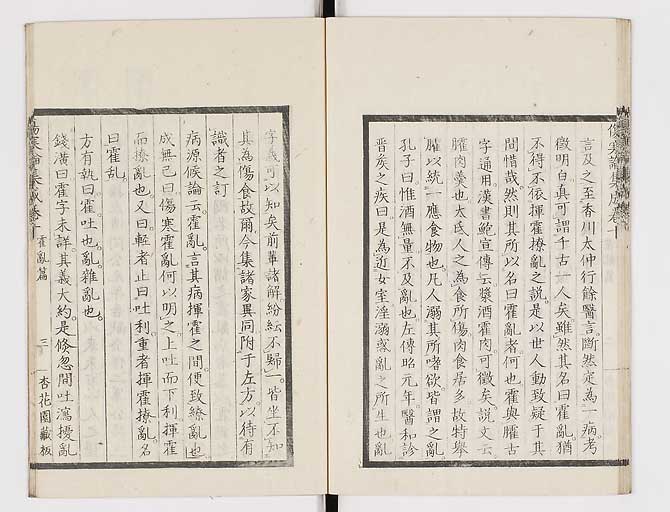 言及之至香川太仲行餘醫言斷然定為一病考
徵明白真可謂千古一人矣雖然其名曰霍亂猶
不得不依揮霍撩亂之說是以世人動致疑于其
間惜哉然則其所以名曰霍亂者何也霍與臛古
字通用漢書鮑宣傳云漿酒霍肉可徵矣說文云
臛肉羹也大氐人之為食所傷肉食居多故特舉
臛以統一應食物也凡人溺其所嗜欲皆謂之亂
孔子曰惟酒無量不及亂也左傳昭元年醫和診
晋矦之疾曰是為近女室淫溺惑亂之所生也亂
字義可以知矣前輩諸解紛紜不歸一皆坐不知
其為傷食故爾今集諸家異同附于左方以待有
識者之訂
病源候論云霍亂言其病揮霍之間便致繚亂也
成無己曰傷寒霍亂何以明之上吐而下利揮霍
而撩亂也又曰輕者止曰吐利重者揮霍撩亂名
曰霍亂
方有執曰霍吐也亂雜亂也
錢潢曰霍字未詳其義大約是倏忽間吐瀉擾亂
霍亂篇
三
杏花園藏板